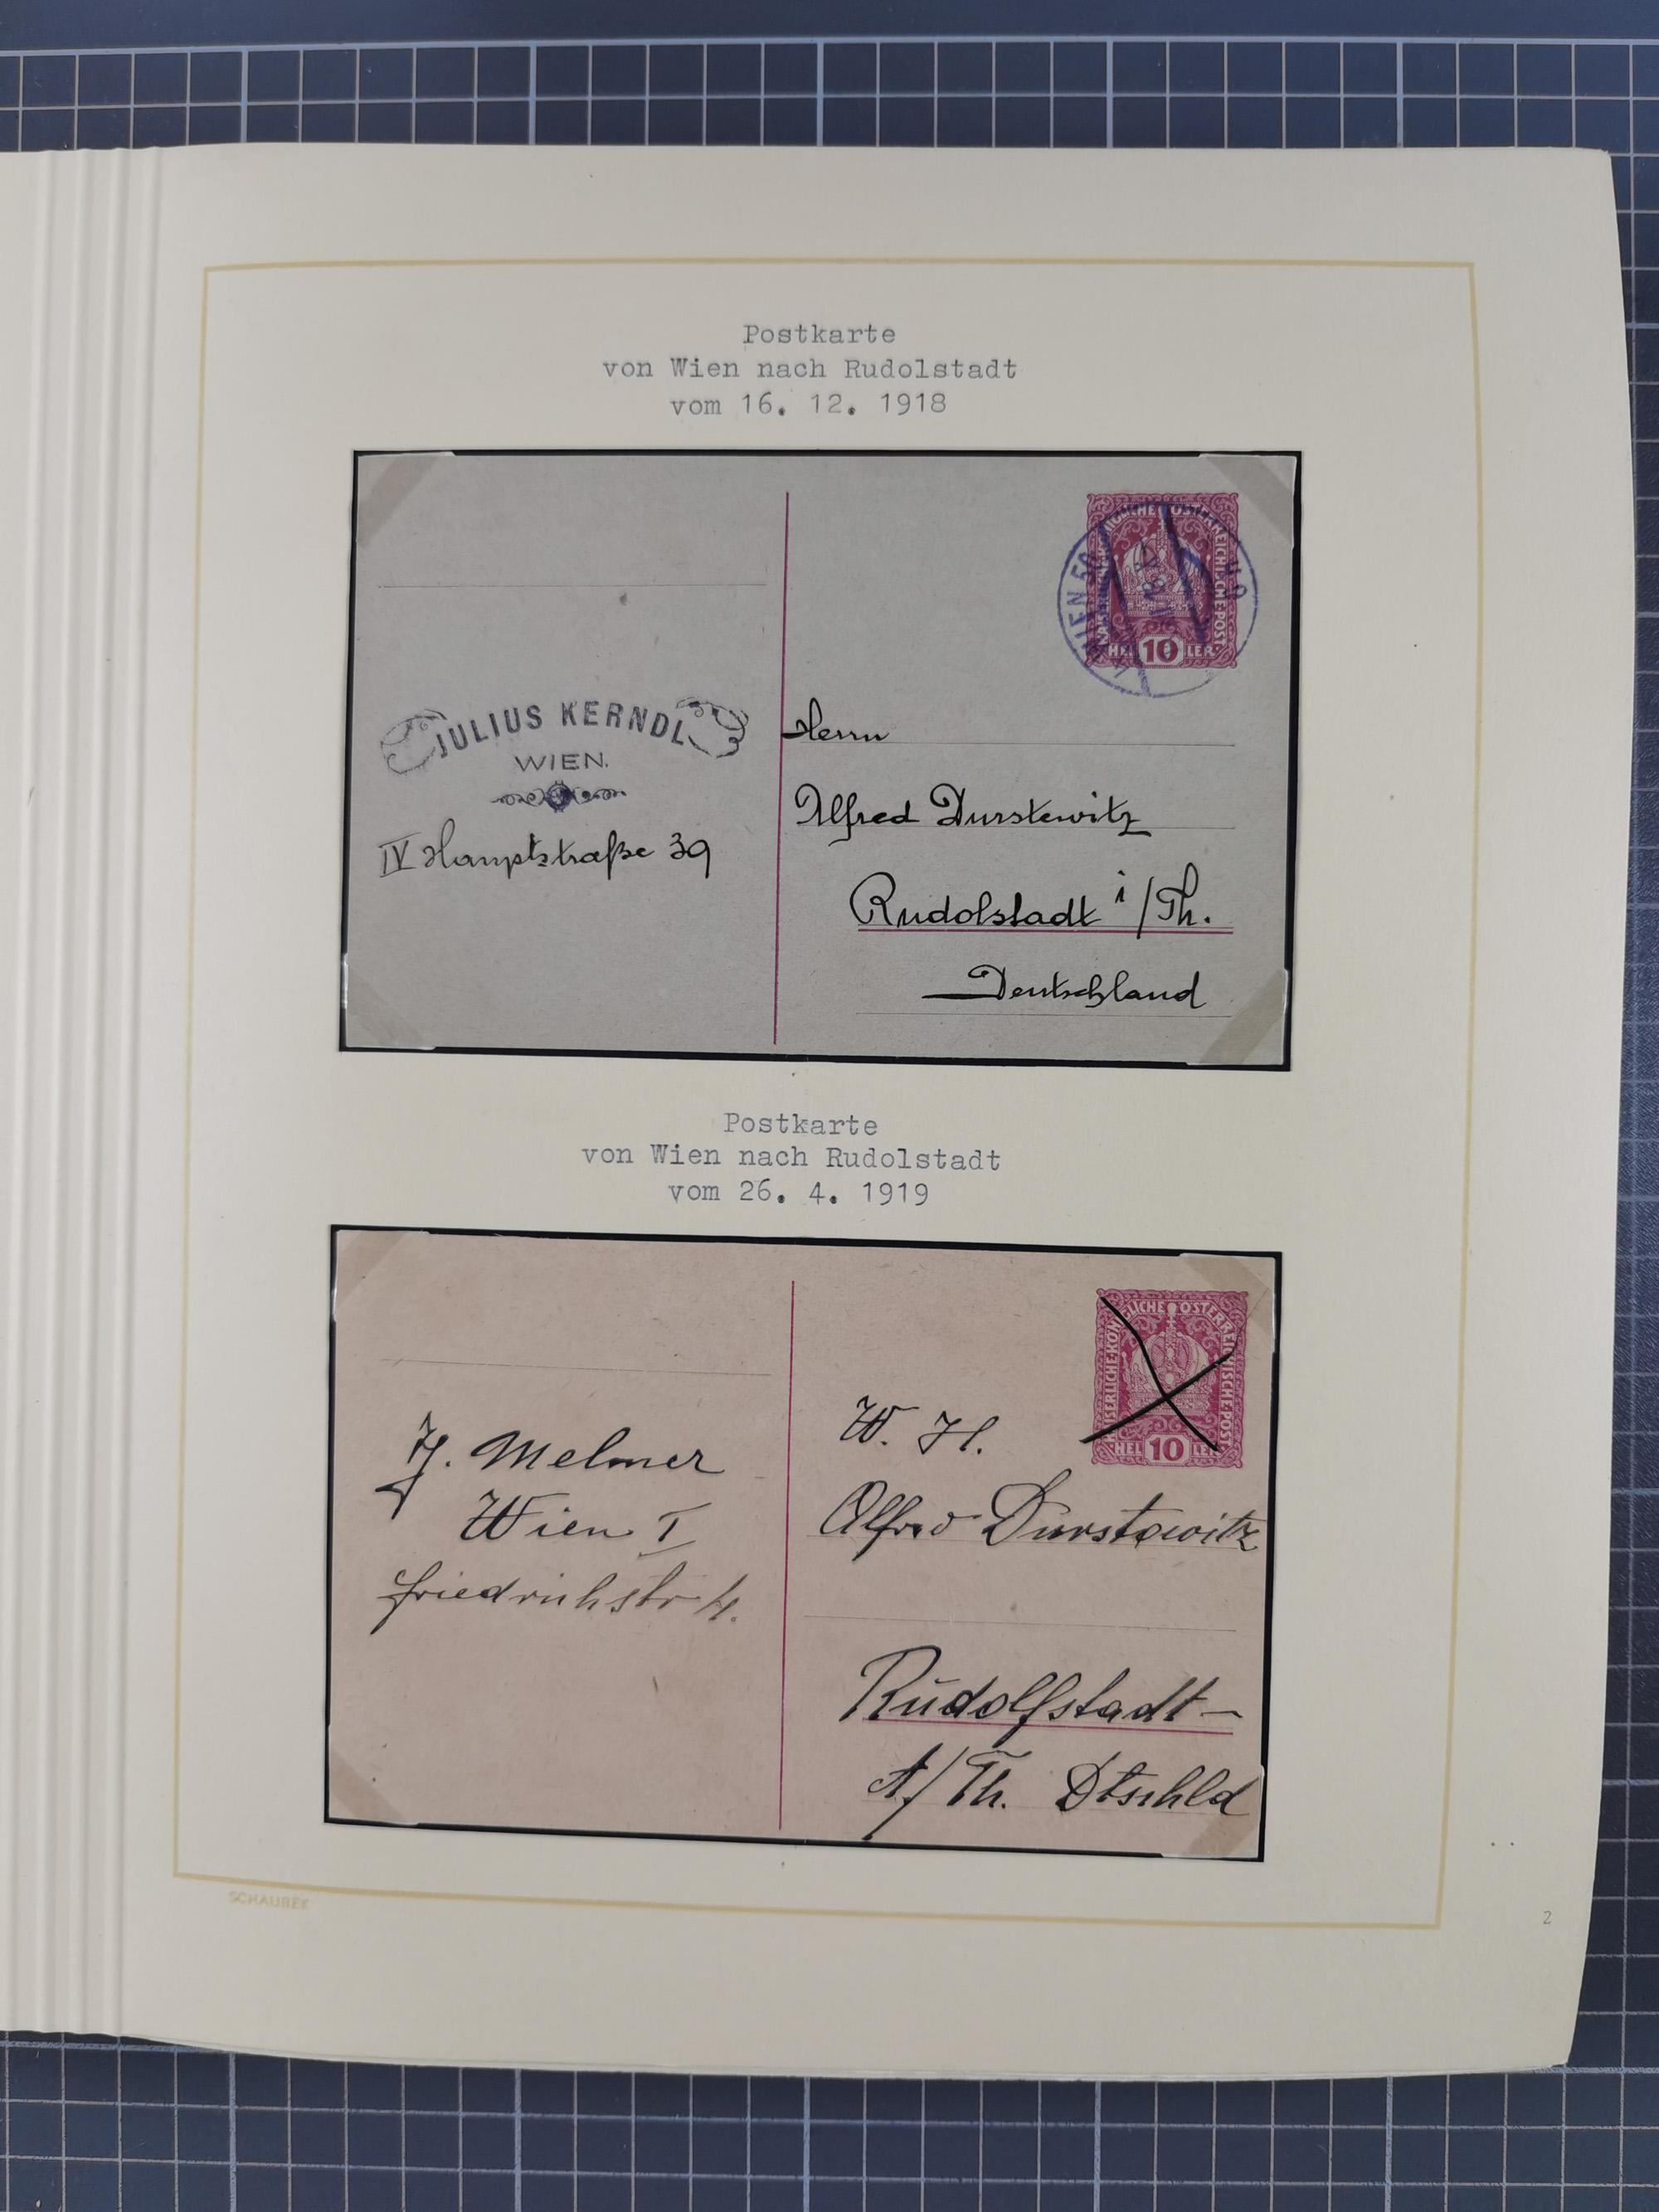 Postkarte
von Wien nach Rudolstadt
vom 16. 12. 1918
KAISERLICHE KÖNIGLICHE ÖSTERREICHISCHE POST
HELLER 10
WIEN 50
JULIUS KERNDL
WIEN.
IV Hauptstraße 39
Herrn
Alfred Durstewitz
Rudolstadt i/Th.
Deutschland
Postkarte
von Wien nach Rudolstadt
vom 26. 4. 1919
KAISERLICHE KÖNIGLICHE ÖSTERREICHISCHE POST
HEL 10 LER
J. Melmer
Wien I
Friedrichstr 4.
W. H.
Alfred Durstewitz
Rudolfstadt-
A/Th. Dtschld
SCHAUBEK
2